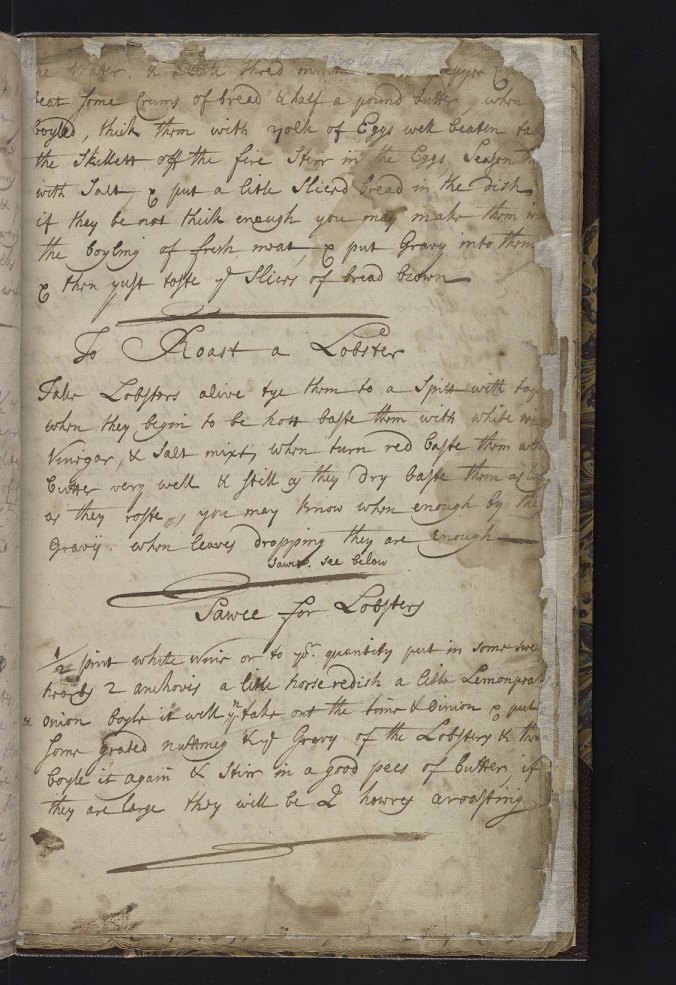 the water. a little shred
beat some Crums of bread & half a pound butter, when
boyled, thick them with yolk of Eggs well beaten tak
the Skillett off the fire Stirr in the Eggs, Season
with Salt, & put a litle Sliced bread in the dish,
if they be not thick enough you may make them
the boyling of fresh meat, & put Gravy into them
& then just toste ye Slices of bread brown
To Roast a Lobster
Take Lobsters alive tye them to a Spitt with
when they begin to be hott baste them with white
Vinegar, & Salt mixt, when turn red baste them
butter very well & still as they dry baste them as
as they roste, you may know when enough by the
Gravy. when leaves dropping they are Enough
sawce. see below
Sawce for Lobsters
1/2 pint white wine or to yr. quantity put in some swe
hearbs 2 anchovis a litle horse redish a litle Lemonpea
a onion boyle it well yn. take out the time & Onion & put
some grated nuttmeg & ye Gravy of the Lobsters & th
boyle it again & Stirr in a good peec of butter if
they are large they will be 2 howres aroasting